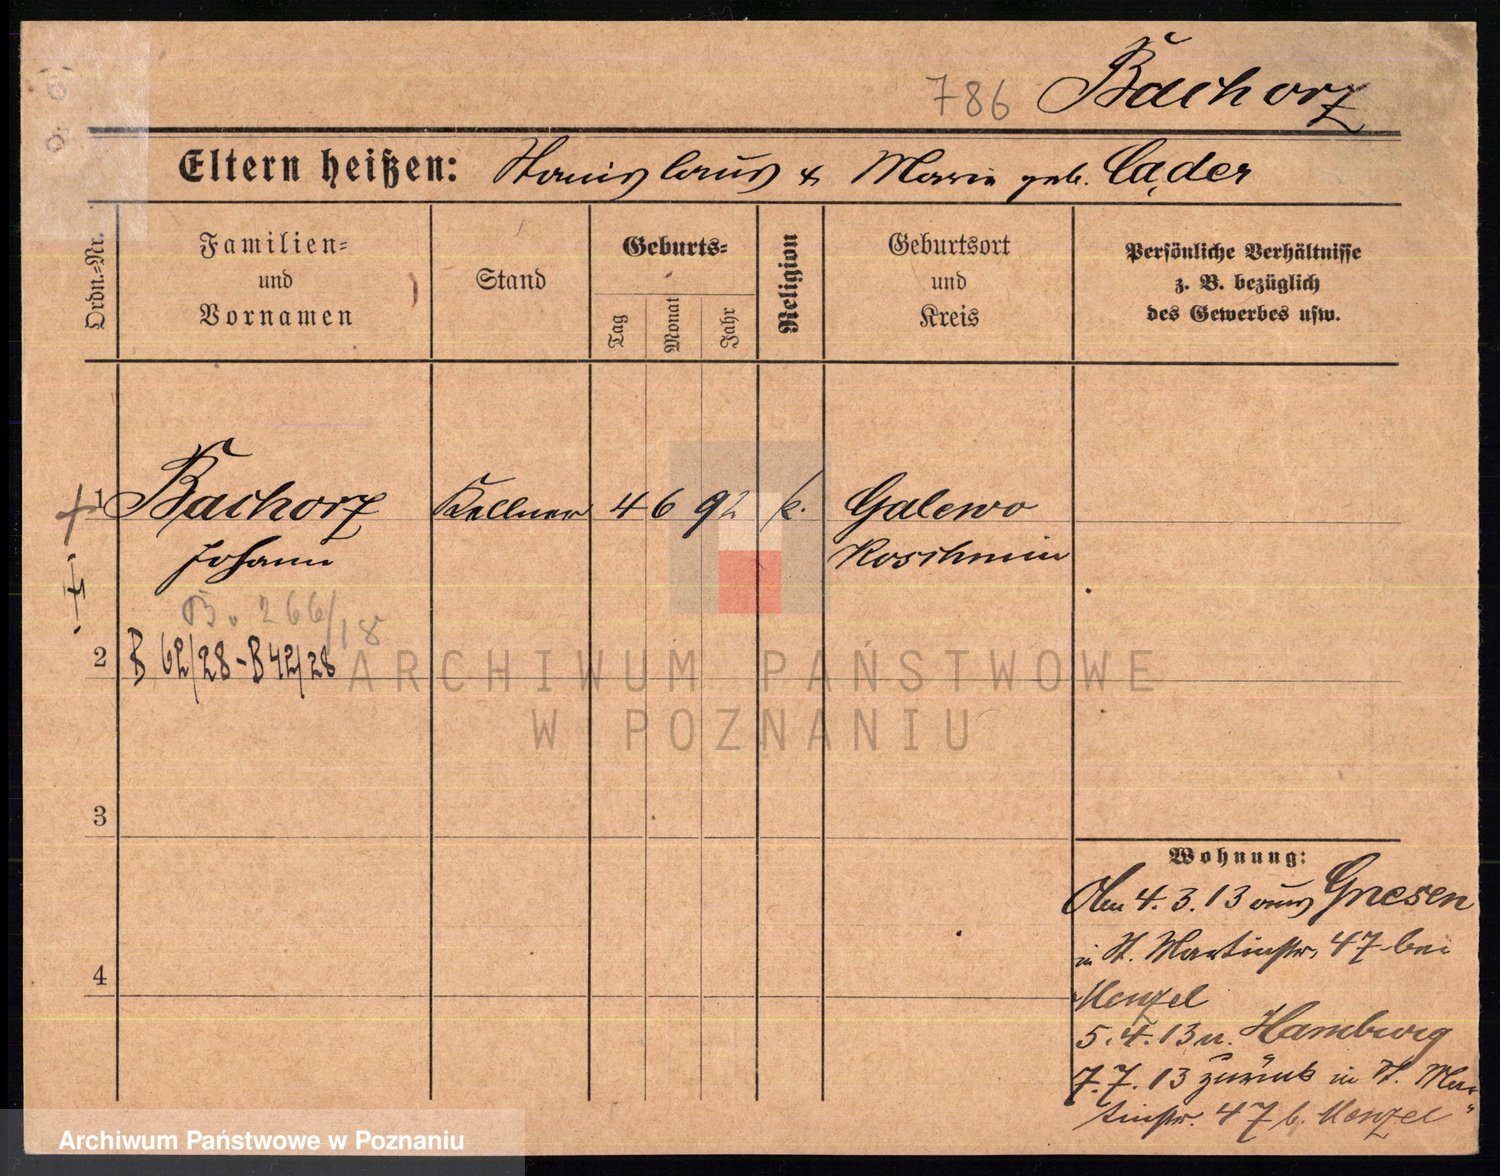 786 Bachorz
Eltern heißen: Stanislaus & Maria geb. Cąder
Ordn.=Nr.
Familien=
und
Vornamen
Stand
Geburts=
Tag
Monat
Jahr
Religion
Geburtsort
und
Kreis
Persönliche Verhältnisse
z. B. bezüglich
des Gewerbes usw.
1 Bachorz Kellner 4 6 92 k. Galewo
Johann Koschmin
B. 266/18
2 B 62/28-B 42/28
ARCHIWUM PAŃSTWOWE
W POZNANIU
3
Wohnung:
4. 3. 13 aus Gnesen
in St. Martinstr. 47 bei
4
Menzel
5. 4. 13 n. Hamburg
7. 7. 13 zurück in St. Mar-
tinstr. 47 b. Menzel
Archiwum Państwowe w Poznaniu